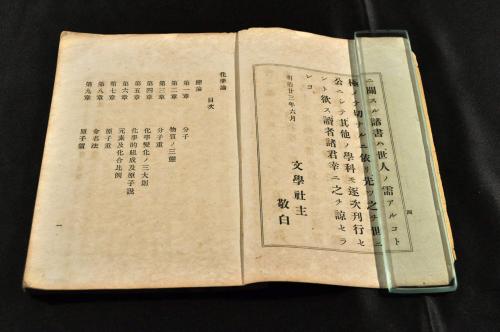 ニ關スル諸書ハ世人ノ需アルコト
極メテ切ナルニ依リ先ツ之チ世ニ
公ニシテ其他ノ學科モ逐次刊行セ
ント欲ス讀者諸君幸ニ之チ諒セラ
レヨ
明治廿三年六月
文學社主
敬白
四
化學論
目次
總論
第一章 分子
第二章 物質ノ三態
第三章 分子重
第四章 化學變化ノ三大則
第五章 化學的組成及原子說
第六章 元素及化合比例
第七章 原子重
第八章 命名法
第九章 原子價
一